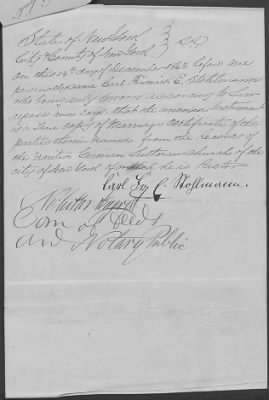 State of New York
City & County of New York } SS
on this 16th day of December 1868 before me
personally came Carl Francis C. Stohlmann
who being duly sworn according to Law
deposes and says that the annexed Instrument
is a True copy of Marriage Certificate of the
parties therein named from the records of
the German Lutheran Church of the
City of New York of which he is Pastor
Carl Fr. C. Stohlmann.
Com of Deeds
and Notary Public